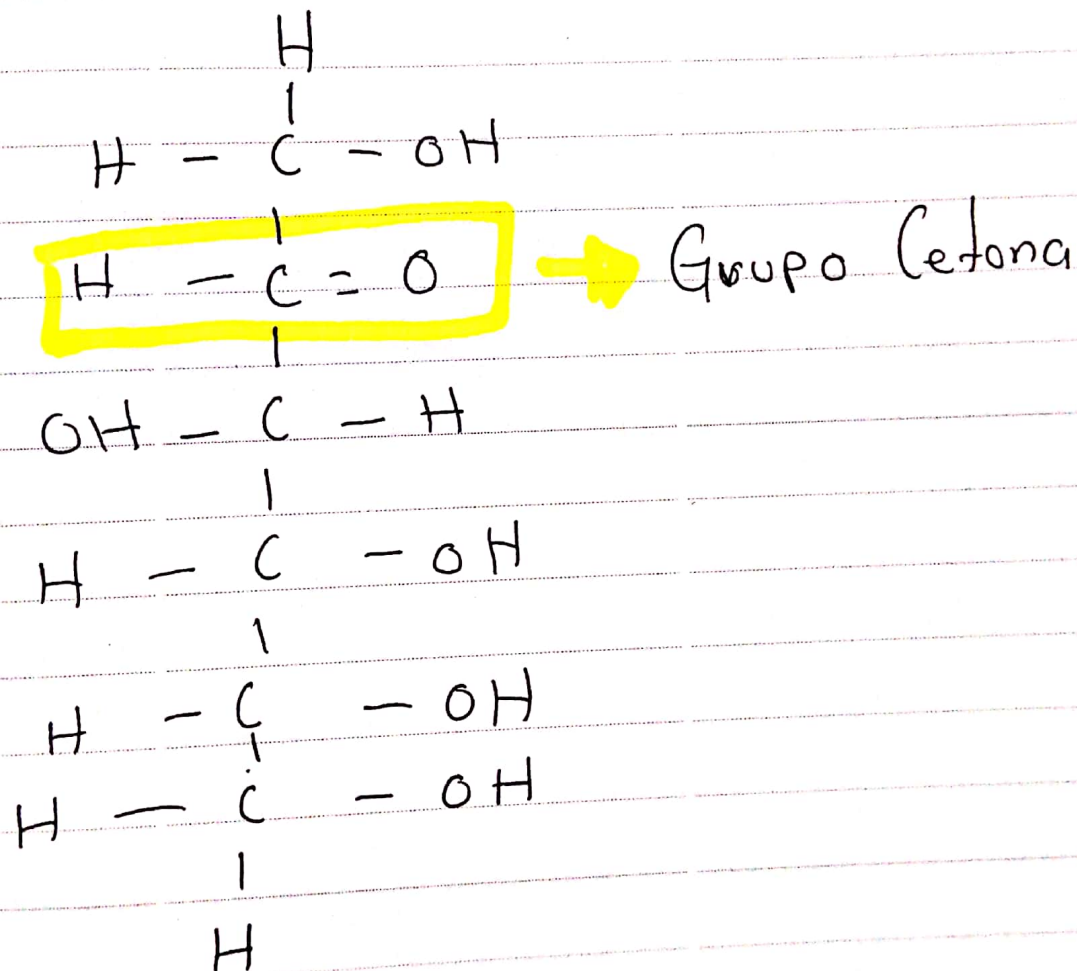 H
|
H - C - OH
|
H - C = O → Grupo Cetona
|
OH - C - H
|
H - C - OH
|
H - C - OH
|
H - C - OH
|
H